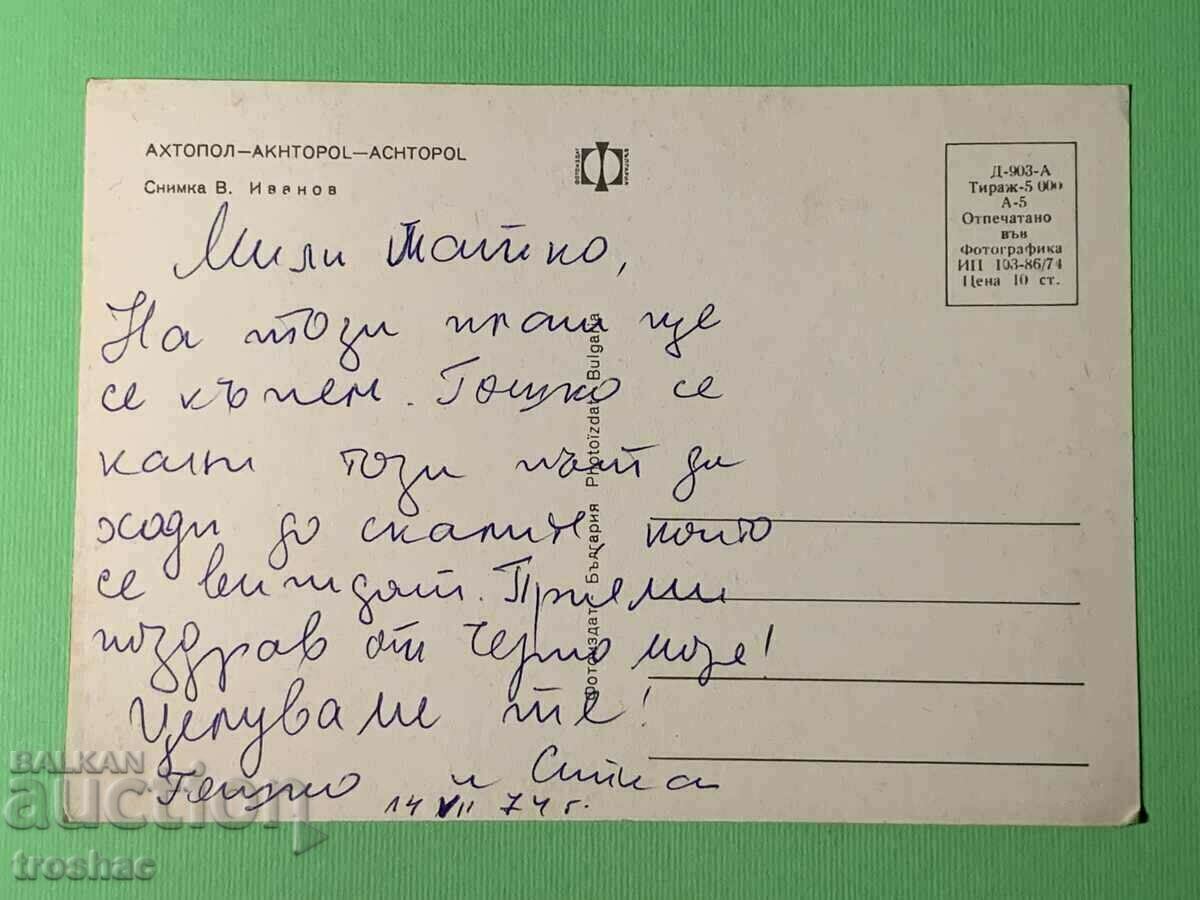 АХТОПОЛ—AKHTOPOL—ACHTOPOL
Снимка В. Иванов
ФОТОИЗДАТ
БЪЛГАРИЯ
Д-903-А
Тираж-5 000
А-5
Отпечатано
във
Фотографика
ИП 103-86/74
Цена 10 ст.
Мили Татко,
На този плаж ще
се къпем. Гошко се
кани този път да
ходи до скалите които
се виждат. Приеми
поздрав от Черно море!
Целуваме те!
Гошко и
14 VII 74 г.
Фотоиздат България Photoizdat Bulgaria
BALKAN
auction
troshac